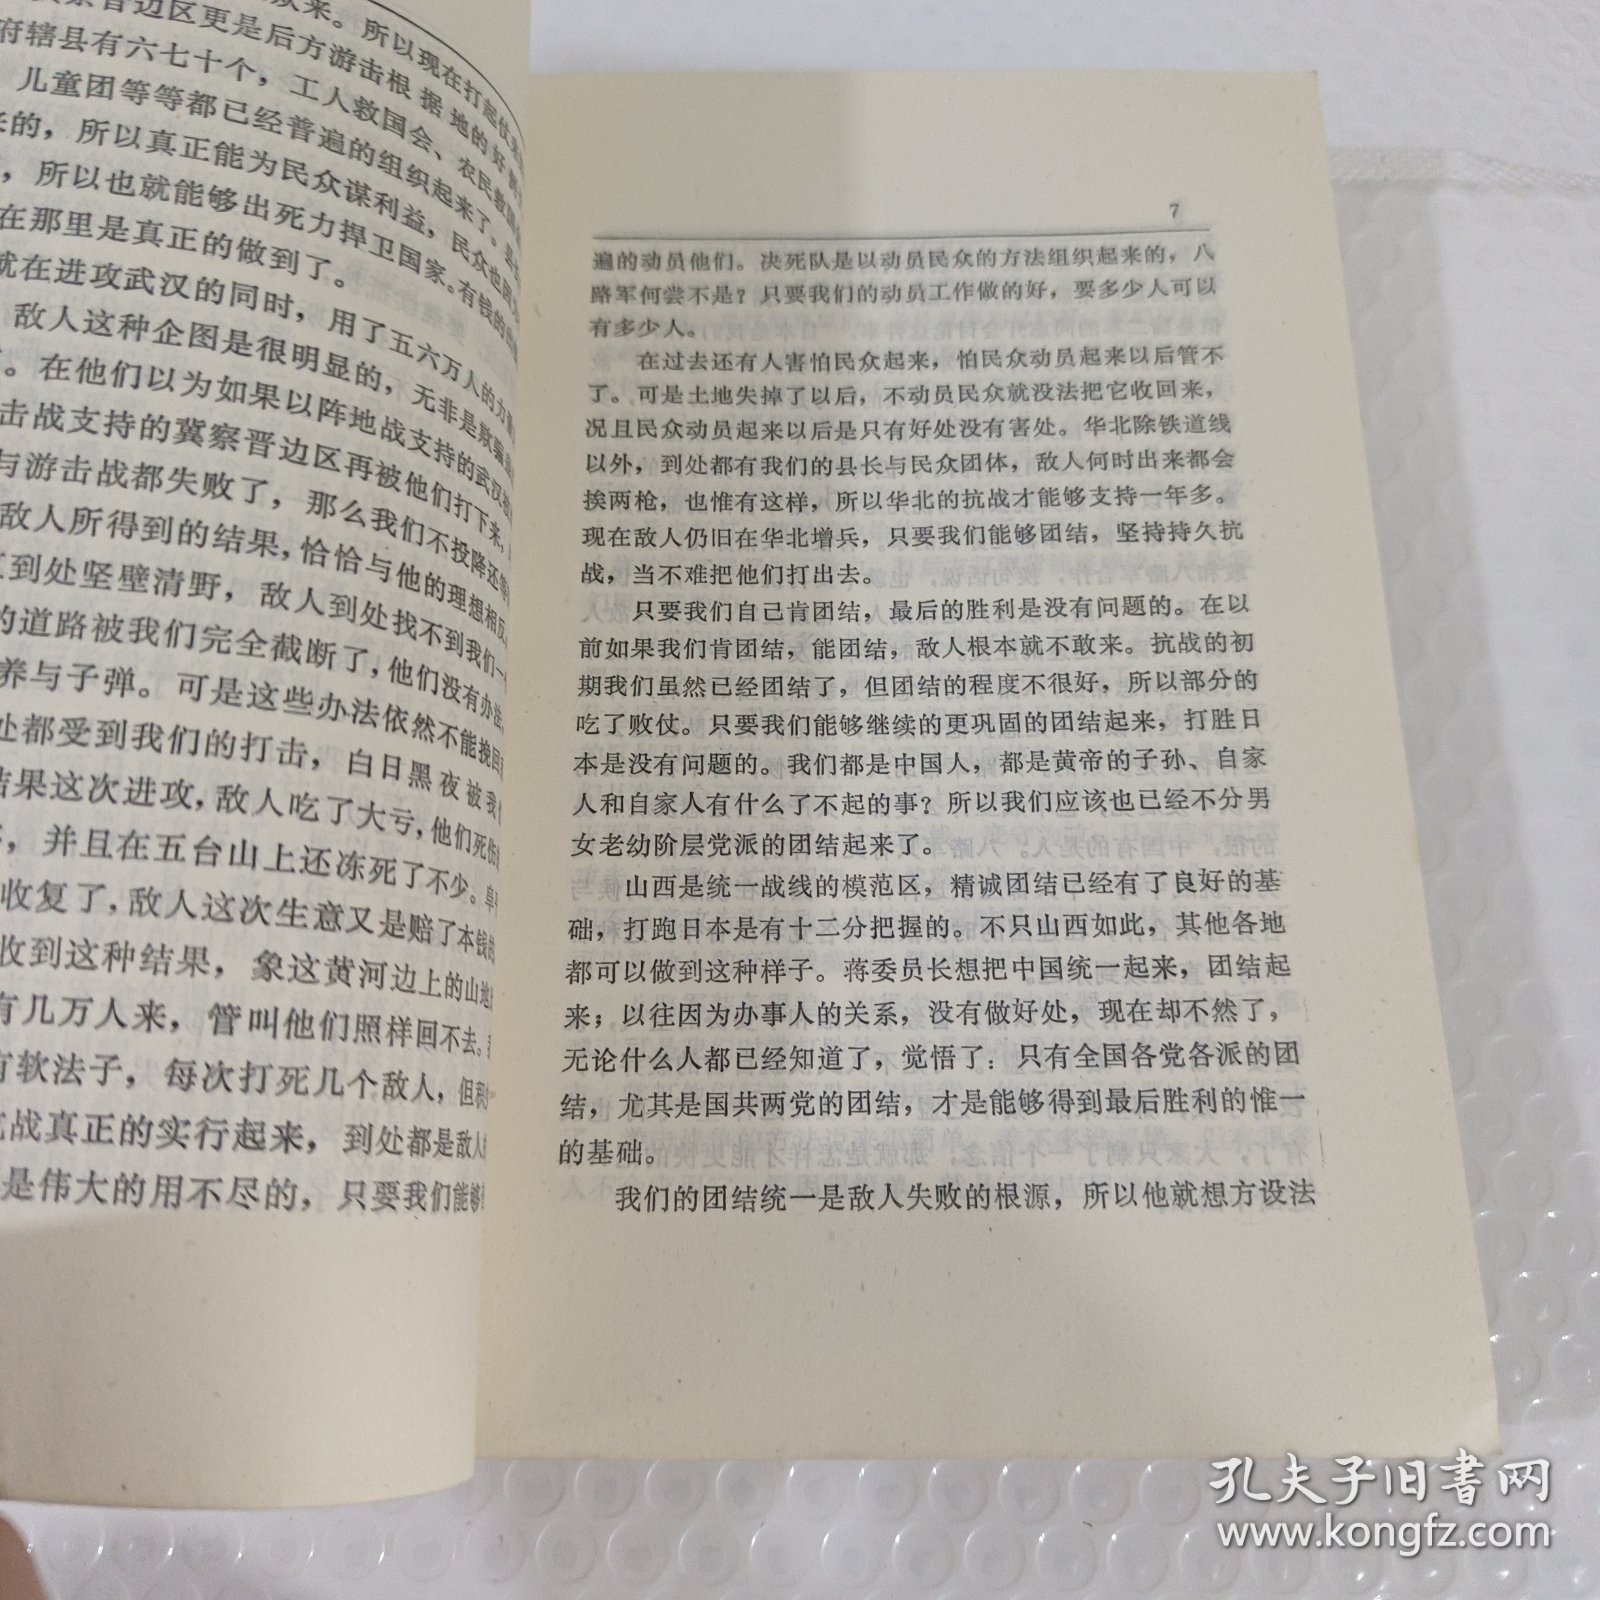 从来。所以现在打起仗来
察晋边区更是后方游击根据地的好
府辖县有六七十个，工人救国会、农民救国
儿童团等等都已经普遍的组织起来了。
来的，所以真正能为民众谋利益，民众也
，所以也就能够出死力捍卫国家。有钱的出
在那里是真正的做到了。
就在进攻武汉的同时，用了五六万人的力量
敌人这种企图是很明显的，无非是欺骗
。在他们以为如果以阵地战支持的武汉
击战支持的冀察晋边区再被他们打下来，
与游击战都失败了，那么我们不投降还等
敌人所得到的结果，恰恰与他的理想相反
到处坚壁清野，敌人到处找不到我们一
的道路被我们完全截断了，他们没有办法
养与子弹。可是这些办法依然不能挽回
处都受到我们的打击，白日黑夜被我
结果这次进攻，敌人吃了大亏，他们死伤
，并且在五台山上还冻死了不少。阜
收复了，敌人这次生意又是赔了本钱的
收到这种结果，象这黄河边上的山地
有几万人来，管叫他们照样回不去。
有软法子，每次打死几个敌人，但积
抗战真正的实行起来，到处都是敌人
是伟大的用不尽的，只要我们能够
7
遍的动员他们。决死队是以动员民众的方法组织起来的，八
路军何尝不是？只要我们的动员工作做的好，要多少人可以
有多少人。
在过去还有人害怕民众起来，怕民众动员起来以后管不
了。可是土地失掉了以后，不动员民众就没法把它收回来，
况且民众动员起来以后是只有好处没有害处。华北除铁道线
以外，到处都有我们的县长与民众团体，敌人何时出来都会
挨两枪，也惟有这样，所以华北的抗战才能够支持一年多。
现在敌人仍旧在华北增兵，只要我们能够团结，坚持持久抗
战，当不难把他们打出去。
只要我们自己肯团结，最后的胜利是没有问题的。在以
前如果我们肯团结，能团结，敌人根本就不敢来。抗战的初
期我们虽然已经团结了，但团结的程度不很好，所以部分的
吃了败仗。只要我们能够继续的更巩固的团结起来，打胜日
本是没有问题的。我们都是中国人，都是黄帝的子孙、自家
人和自家人有什么了不起的事？所以我们应该也已经不分男
女老幼阶层党派的团结起来了。
山西是统一战线的模范区，精诚团结已经有了良好的基
础，打跑日本是有十二分把握的。不只山西如此，其他各地
都可以做到这种样子。蒋委员长想把中国统一起来，团结起
来；以往因为办事人的关系，没有做好处，现在却不然了，
无论什么人都已经知道了，觉悟了：只有全国各党各派的团
结，尤其是国共两党的团结，才是能够得到最后胜利的惟一
的基础。
我们的团结统一是敌人失败的根源，所以他就想方设法
孔夫子旧书网
www.kongfz.com